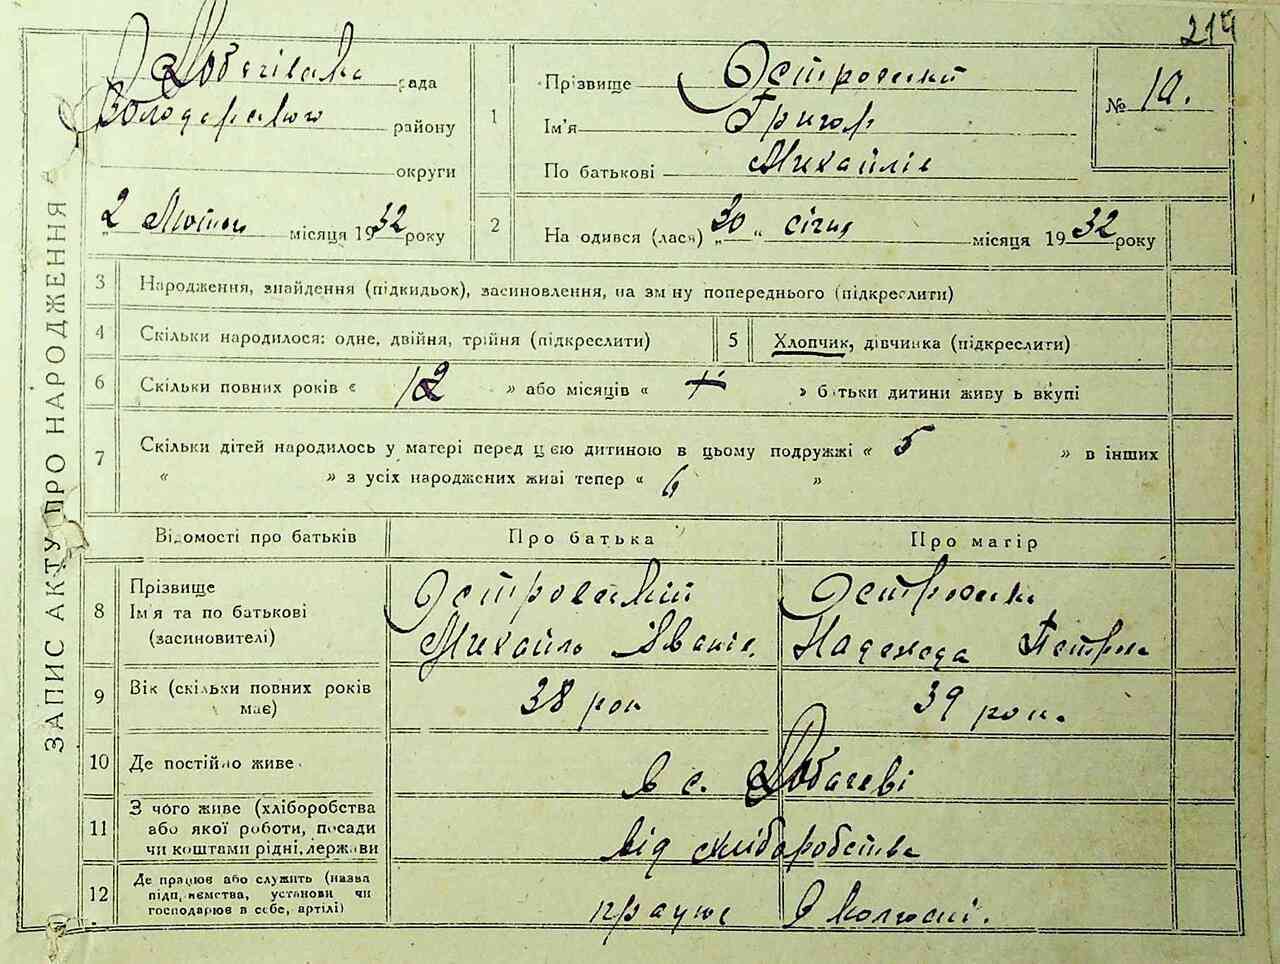 214
Лобачівська рада
Володарського району
округи
„2 Лютня місяця 1932 року
ЗАПИС АКТУ ПРО НАРОДЖЕННЯ
1
Прізвище Островський
Ім'я Григор
По батькові Михайлів
№ 10.
2
На одився (лася) „30“ січня місяця 1932 року
3 Народження, знайдення (підкидьок), засиновлення, на зм ну попереднього (підкреслити)
4 Скільки народилося: одне, двійня, трійня (підкреслити) 5 Хлопчик, дівчинка (підкреслити)
6 Скільки повних років « 12 » або місяців « » батьки дитини живу ь вкупі
7 Скільки дітей народилось у матері перед цією дитиною в цьому подружжі « 5 » в інших
« » з усіх народжених живі тепер « 6 »
Відомості про батьків Про батька Про матір
8 Прізвище
Ім'я та по батькові
(засиновителі)
Островський
Михайло Іванів.
Островська
Надежда Петрів
9 Вік (скільки повних років
має)
38 рок
39 рок.
10 Де постійно живе
в с. Лобачеві
11 З чого живе (хліборобства
або якої роботи, посади
чи коштами рідні, держави
від хліборобства
12 Де працює або служить (назва
підп, иємства, установи чи
господарює в себе, артілі)
працює в колгоспі.